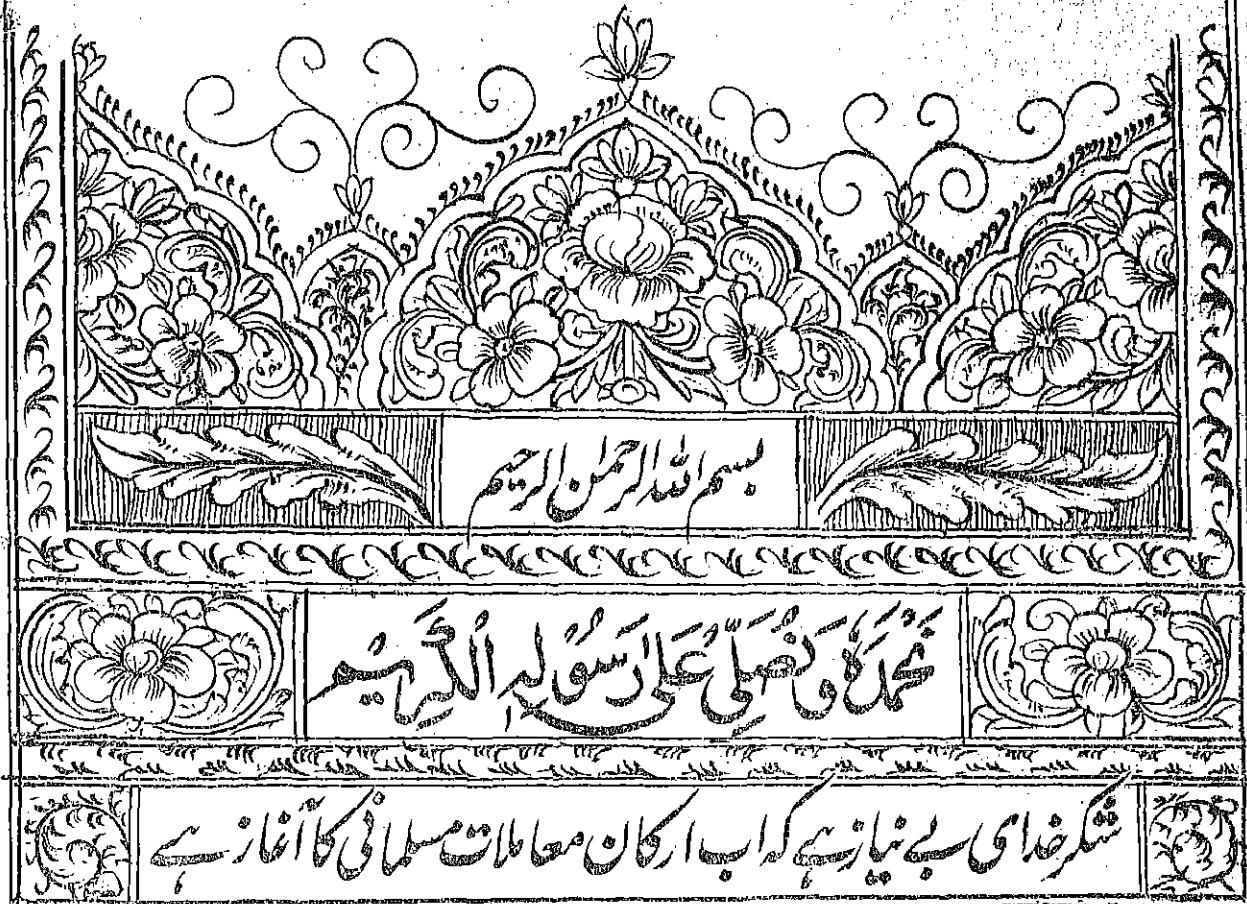 بسم اللہ الرحمٰن الرحیم
نَحْمَدُہٗ وَنُصَلِّیْ عَلٰی رَسُوْلِہِ الْکَرِیْمِ
شکر خدای بے نیاز ہے کہ اب ارکان معاملات مسلمانی کا آغاز ہے